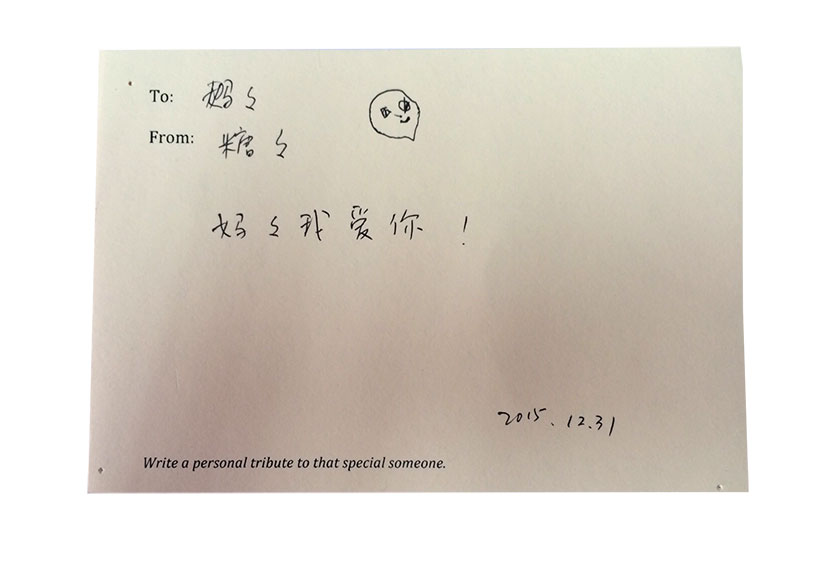 To: 妈々
From: 糖々
妈々我爱你！
2015.12.31
Write a personal tribute to that special someone.